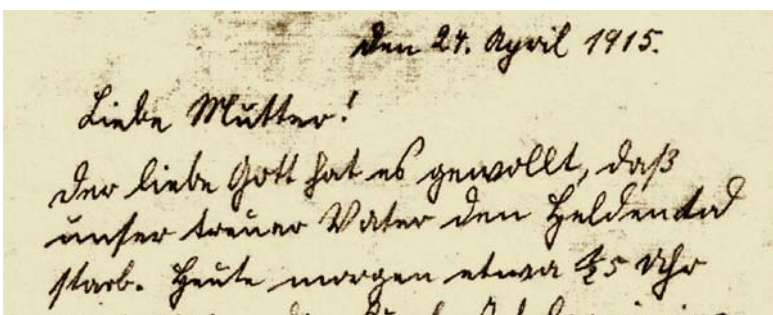 den 24. April 1915.
Liebe Mutter!
Der liebe Gott hat es gewollt, daß
unser treuer Vater den Heldentod
starb. Heute morgen etwa ½5 Uhr